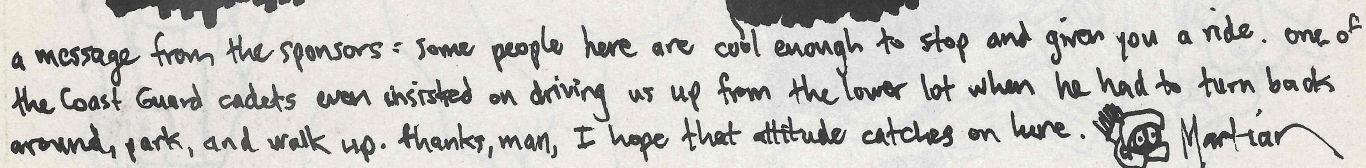 a message from the sponsors: some people here are cool enough to stop and given you a ride. one of
the Coast Guard cadets even insisted on driving us up from the lower lot when he had to turn back
around, park, and walk up. thanks, man, I hope that attitude catches on here. Martian